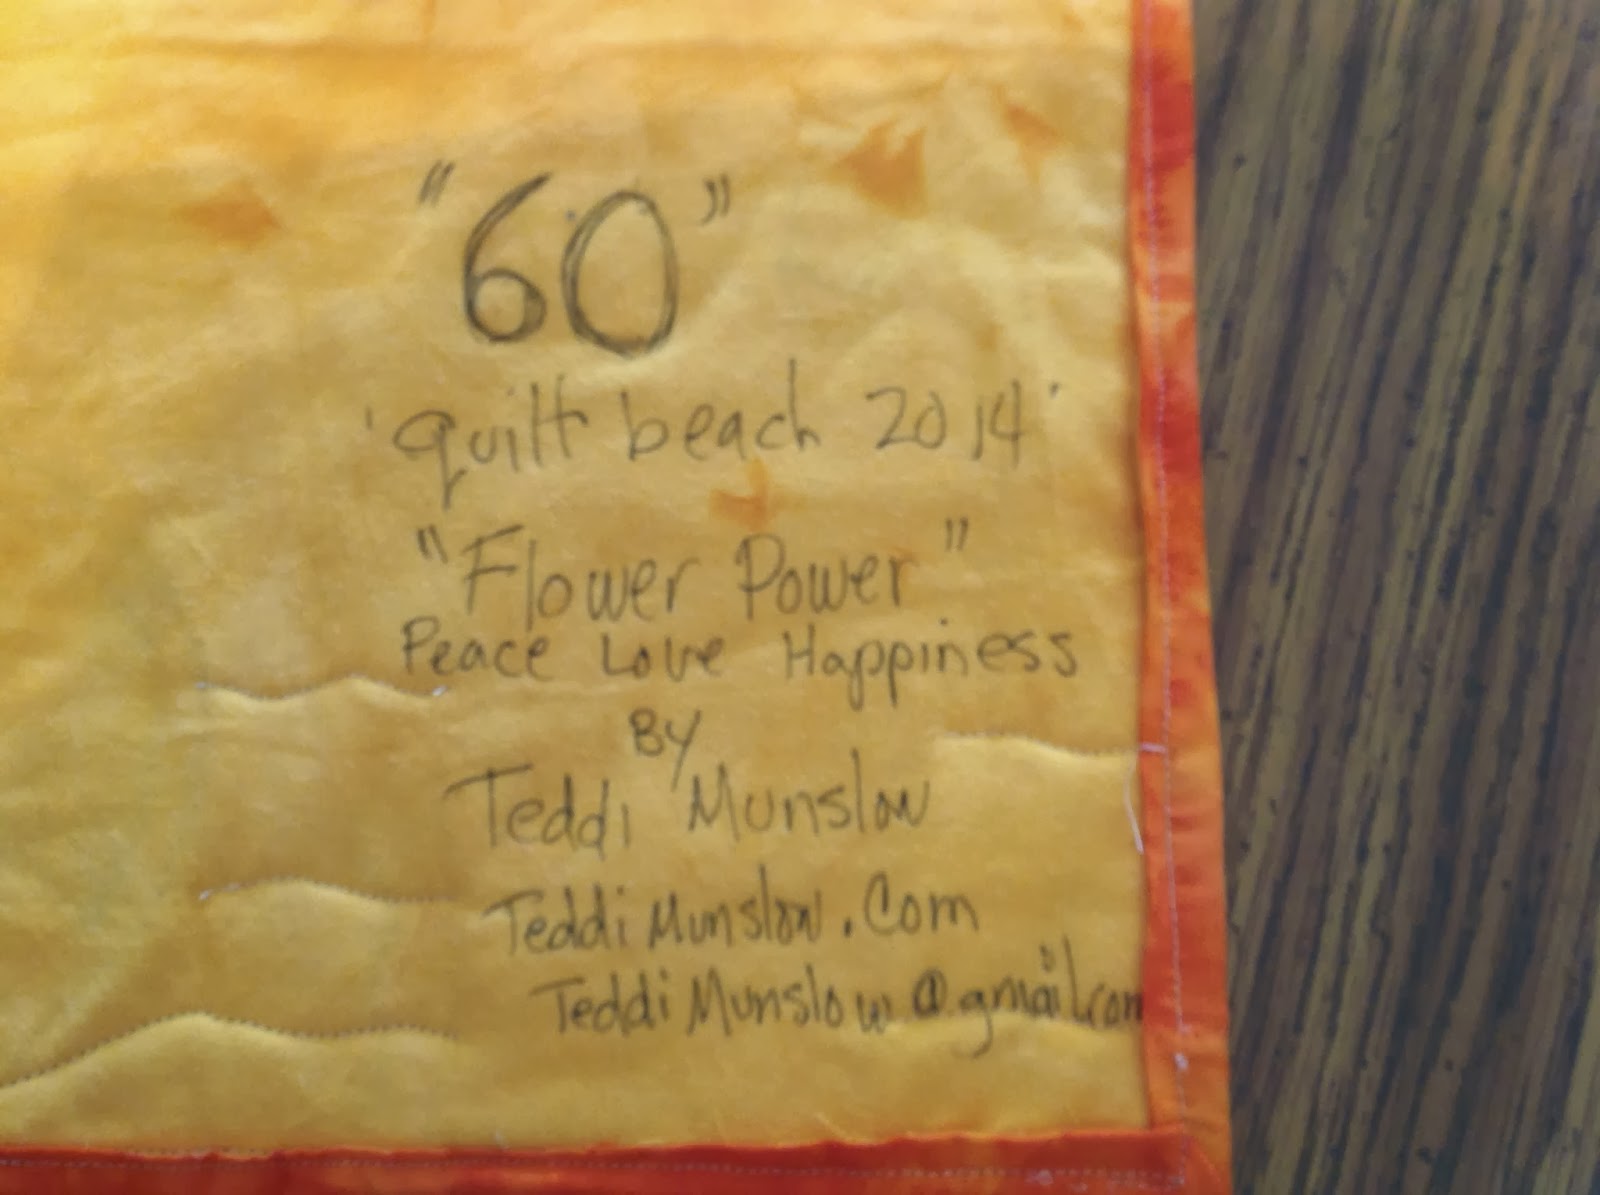 "60"
'quilt beach 2014'
"Flower Power"
Peace Love Happiness
By
Teddi Munslow
TeddiMunslow.Com
TeddiMunslow@gmail.com